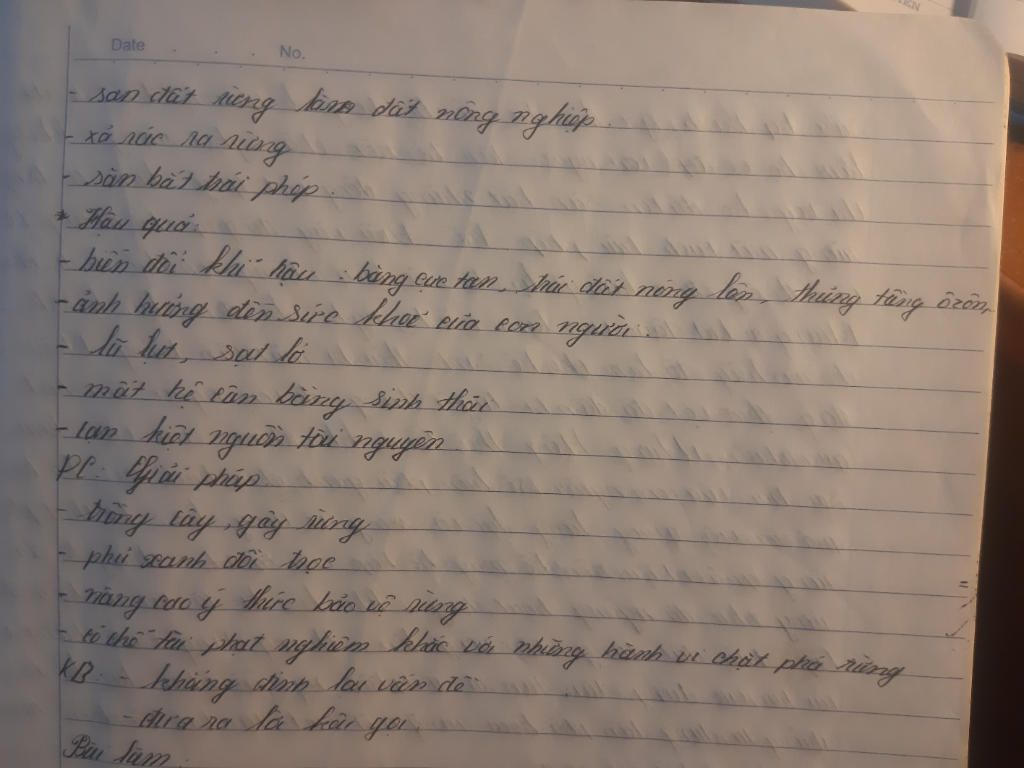 Date . . . No.
- san đất rừng làm đất nông nghiệp.
- xả rác ra rừng
- săn bắt trái phép.
* Hậu quả:
- biến đổi khí hậu : băng cực tan, trái đất nóng lên, thủng tầng ôzôn,
- ảnh hưởng đến sức khoẻ của con người.
- lũ lụt, sạt lở
- mất hệ cân bằng sinh thái
- cạn kiệt nguồn tài nguyên
Giải pháp
- trồng cây, gây rừng
- phủ xanh đồi trọc
- nâng cao ý thức bảo vệ rừng
- có chế tài phạt nghiêm khắc với những hành vi chặt phá rừng
KB: - khẳng định lại vấn đề
- đưa ra lời kêu gọi
Bài làm